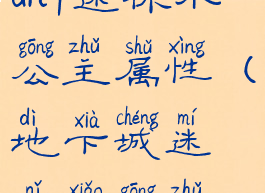 gōng zhǔ shǔ xìng
公主属性（
dì xià chéng mí
地下城迷
xiǎo gōng zhǔ